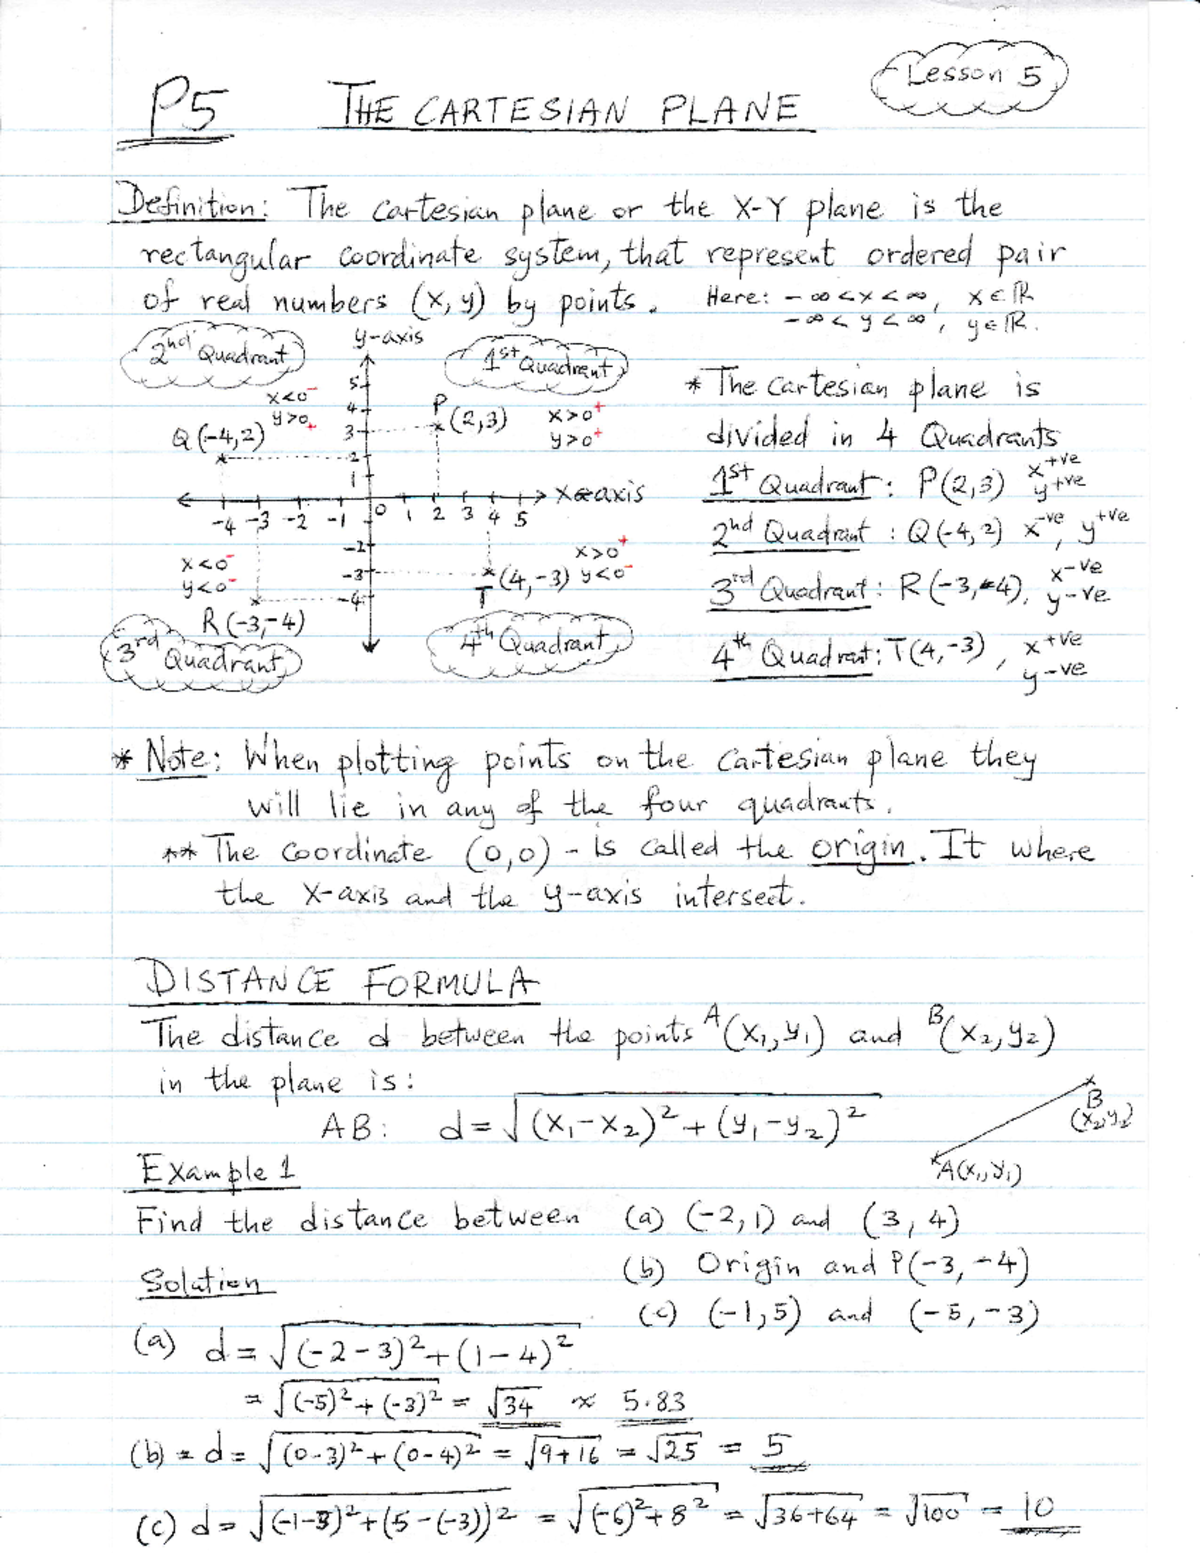 Lesson 5
P5 THE CARTESIAN PLANE
Definition: The Cartesian plane or the X-Y plane is the
rectangular coordinate system, that represent ordered pair
of real numbers (x, y) by points. Here: -∞<x<∞, x∈ℝ
-∞<y<∞, y∈ℝ.
2nd Quadrant
y-axis
1st Quadrant
x<0-
y>0+
Q(-4,2)
P
(2,3)
x>0+
y>0+
5
4
3
2
1
x-axis
-4 -3 -2 -1 0 1 2 3 4 5
-2
-3
-4
x<0-
y<0-
R(-3,-4)
x>0+
(4,-3) y<0-
T
3rd Quadrant
4th Quadrant
* The Cartesian plane is
divided in 4 Quadrants
1st Quadrant: P(2,3) x+ve
y+ve
2nd Quadrant: Q(-4,2) x-ve, y+ve
3rd Quadrant: R(-3,-4), x-ve
y-ve
4th Quadrant: T(4,-3), x+ve
y-ve
* Note: When plotting points on the Cartesian plane they
will lie in any of the four quadrants.
** The Coordinate (0,0) - is called the origin. It where
the X-axis and the y-axis intersect.
DISTANCE FORMULA
The distance d between the points A(x₁,y₁) and B(x₂,y₂)
in the plane is:
AB: d=√(x₁-x₂)²+(y₁-y₂)²
B
(x₂,y₂)
A(x₁,y₁)
Example 1
Find the distance between (a) (-2,1) and (3,4)
(b) Origin and P(-3,-4)
Solution
(c) (-1,5) and (-5,-3)
(a) d=√(-2-3)²+(1-4)²
=√(-5)²+(-3)² = √34 ≈ 5.83
(b) = d=√(0-3)²+(0-4)² = √9+16 = √25 = 5
(c) d=√(-1-3)²+(5-(-3))² = √(-6)²+8² = √36+64 = √100 = 10